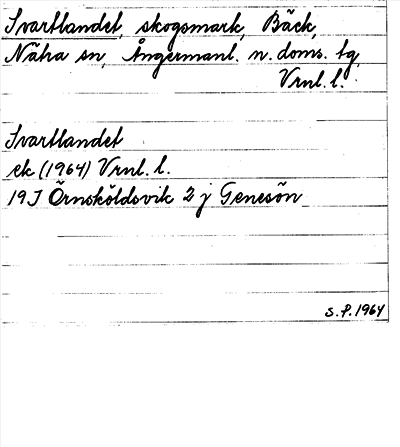 Svartlandet, skogsmark, Bäck,
Nätra sn, Ångermanl. n. doms. tg,
Vrnl. l.
Svartlandet
ek (1964) Vrnl. l.
19J Örnsköldsvik 2 j Genesön
S.P. 1964